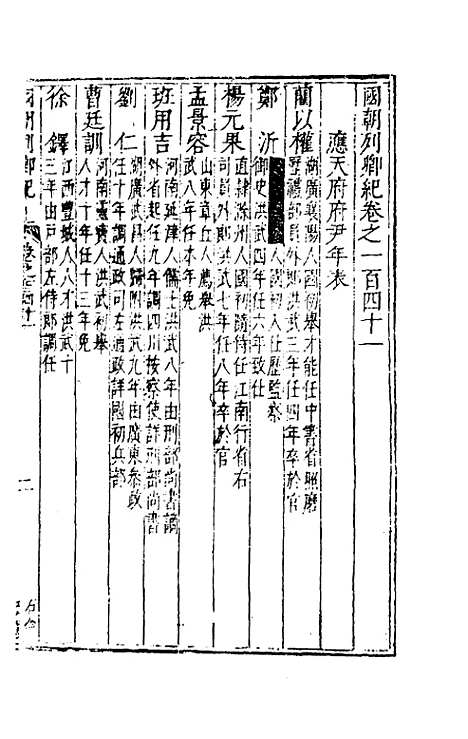 國朝列卿紀卷之一百四十一
應天府府尹年表
蘭以權 湖廣襄陽人國初舉才能任中書省照磨
歷禮部員外郎洪武三年任四年卒於官
鄭沂 人國初入仕歷監察
御史洪武四年任六年致仕
楊元杲 直隸滁州人國初隨侍任江南行省右
司員外郎洪武七年任八年卒於官
孟景容 山東章丘人薦舉洪
武八年任本年免
班用吉 河南延津人儒士洪武八年由刑部尚書調
外省起任九年調四川按察使詳刑部尚書
劉仁 湖廣武昌人歸附洪武九年由廣東參政
任十年調通政司左通政詳國初兵部
曹廷訓 河南靈寶人洪武初舉
人才十年任十三年免
徐鐸 江西豐城人人才洪武十
三年由戶部左侍郎調任
國朝列卿紀
卷之一百四十一
一